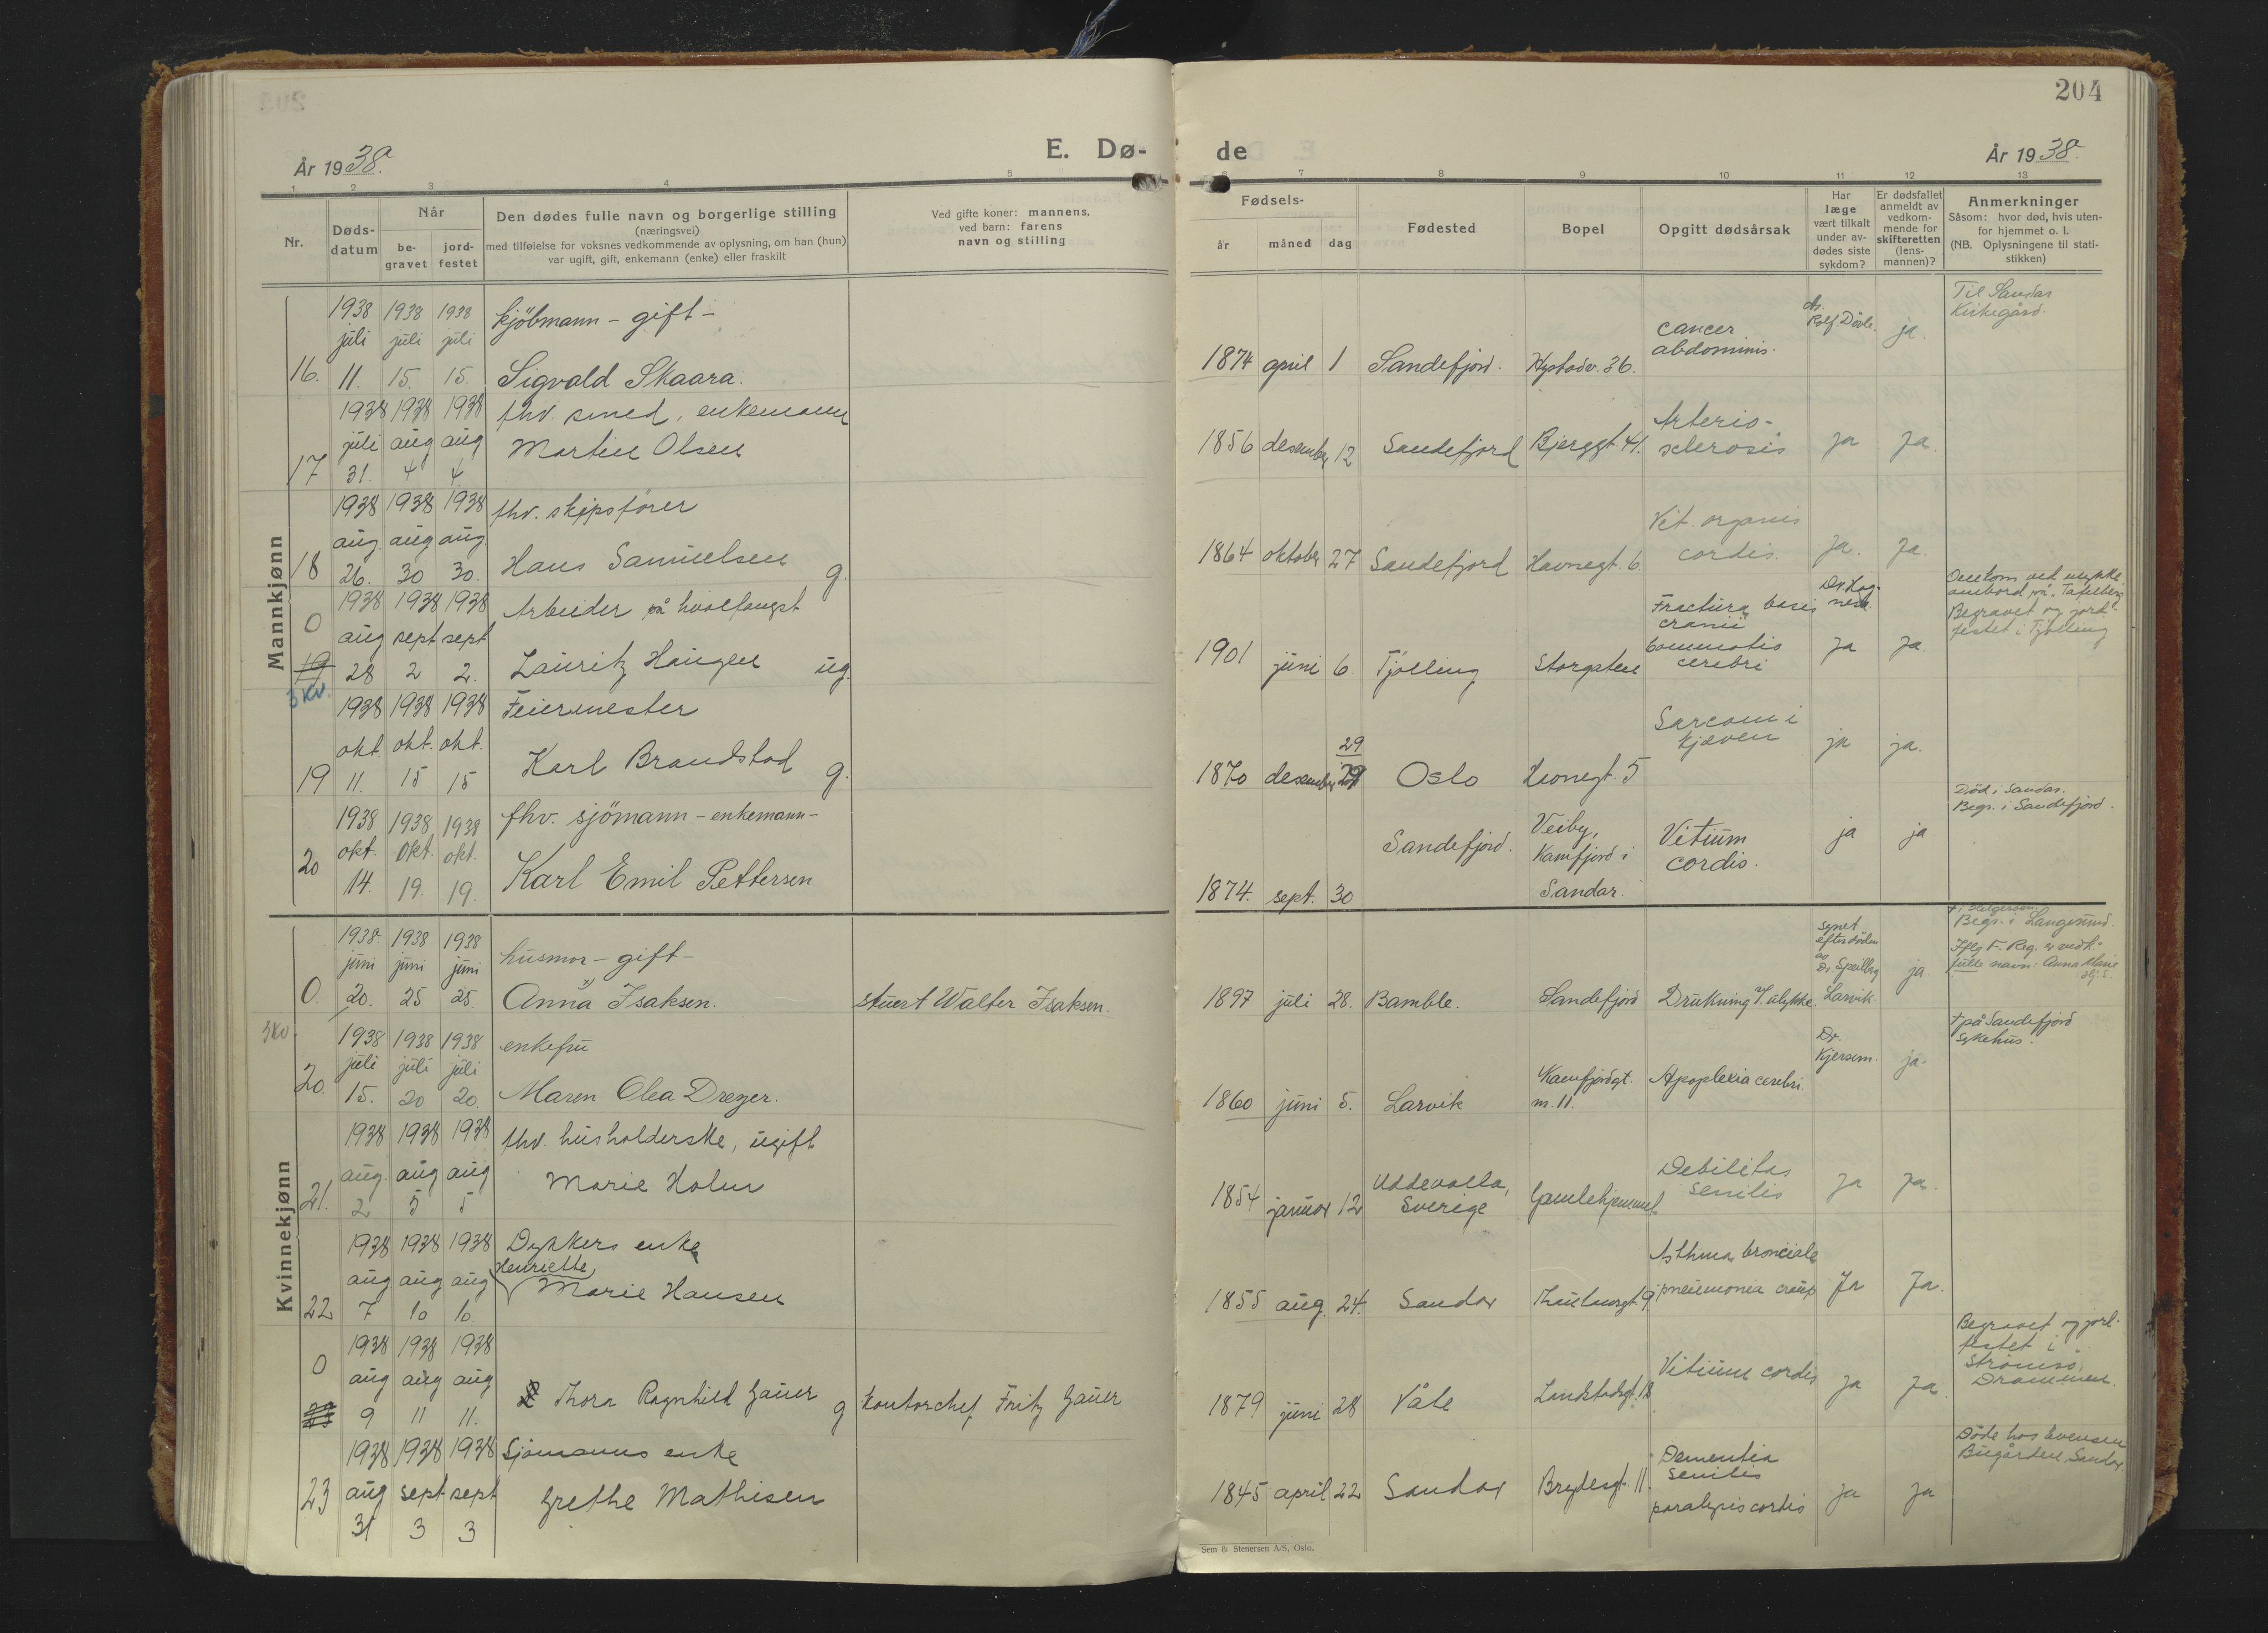 204
År 1938.
E. Dø-
de
År 1938.
1 2 3 4 5
6 7 8 9 10 11 12 13
Nr.
Døds-
datum
Når
be-
gravet
jord-
festet
Den dødes fulle navn og borgerlige stilling
(næringsvei)
med tilføielse for voksnes vedkommende av oplysning, om han (hun)
var ugift, gift, enkemann (enke) eller fraskilt
Ved gifte koner: mannens,
ved barn: farens
navn og stilling
Fødsels-
år måned dag
Fødested
Bopel
Opgitt dødsårsak
Har
læge
vært tilkalt
under av-
dødes siste
sykdom?
Er dødsfallet
anmeldt av
vedkom-
mende for
skifteretten
(lens-
mannen)?
Anmerkninger
Såsom: hvor død, hvis uten-
for hjemmet o. l.
(NB. Oplysningene til stati-
stikken)
Mannkjønn
1938 1938 1938 kjöbmann - gift -
juli juli juli
16. 11. 15. 15. Sigvald Skaara.
1874 april 1 Sandefjord. Hystadv. 36.
cancer
abdominis.
dr.
Rolf Dövle. ja.
Til Sandar
Kirkegård.
1938 1938 1938 fhv. smed, enkemann
juli aug aug Morten Olsen
17 31. 4 4
1856 desember 12 Sandefjord Bjerggt. 41.
Arterio-
sclerosis ja ja.
1938 1938 1938 fhv. skipsfører
aug. aug aug.
18 26. 30 30. Hans Samuelsen g.
1864 oktober 27 Sandefjord Havnegt. 6.
Vit. organis
cordis. ja. ja.
0 1938 1938 1938 Arbeider på hvalfangst
aug sept sept
19 28 2 2. Lauritz Haugen ug.
3 kv.
1901 juni 6 Tjölling Storgaten
Fractura basis
cranii
Commotio
cerebri
ja ja.
Omkom ved ulykke
ombord på "Tafelberg"
Begravet og jord-
festet i Tjölling
1938 1938 1938 Feiermester
okt. okt. okt.
19 11. 15 15 Karl Brandstad g.
29
1870 desember 29 Oslo 5
Sarcom i
kjæven ja ja.
1938 1938 1938 fhv. sjömann - enkemann -
okt. okt. okt.
20 14. 19. 19. Karl Emil Pettersen
1874. sept. 30 Sandefjord.
Veiby,
Kamfjord i
Sandar.
Vitium
cordis. ja ja
Död i Sandar.
Begr. i Sandefjord.
Kvinnekjønn
1938. 1938 1938 husmor - gift -
juni juni juni
0. 20. 25 25. Anna Isaksen. x) stuert Walter Isaksen.
1897 juli 28. Bamble. Sandefjord Drukning v. ulykke.
synet
efter döden
av
Dr.
Larvik ja.
Begr. i Langesund.
fulle navn: Anna Marie
3 kv.
1938 1938 1938 enkefru
juli juli juli
20. 15. 20 20. Maren Olea Dreyer.
1860 juni 5. Larvik
Kamfjordgt.
nr. 11.
Apoplexia cerebri.
Dr.
Kjersem. ja.
† på Sandefjord
sykehus.
1938 1938 1938 fhv. husholderske, ugift
aug. aug aug
21. 2 5 5 Marie Holm
1854 januar 12
Uddevalla,
Sverige
Gamlehjemmet.
Debilitas
senilis ja ja.
1938 1938 1938 Dykkers enke
aug aug aug Henriette
22 7 10 10. Marie Hansen
1855 aug. 24. Sandar Thaulowsgt. 9
Asthma bronciale
pneumonia croup Ja Ja.
0 1938 1938 1938
aug aug aug
23 9 11 11. Thora Ragnhild Gauer g kontorchef Fritz Gauer
1879 juni 28 Våle Landstadsgt. 18
Vitium cordis ja ja
Begravet og jord-
festet i
Strömsö,
Drammen.
1938 1938 1938 Sjömanns enke
aug sept sept
23 31 3 3 Grethe Mathisen
1845 april 22 Sandar Brydesgt. 11.
Dementia
senilis
paralysis cordis ja ja
Döde hos Evensen
Bugården, Sandar
Sem & Stenersen A/S, Oslo.